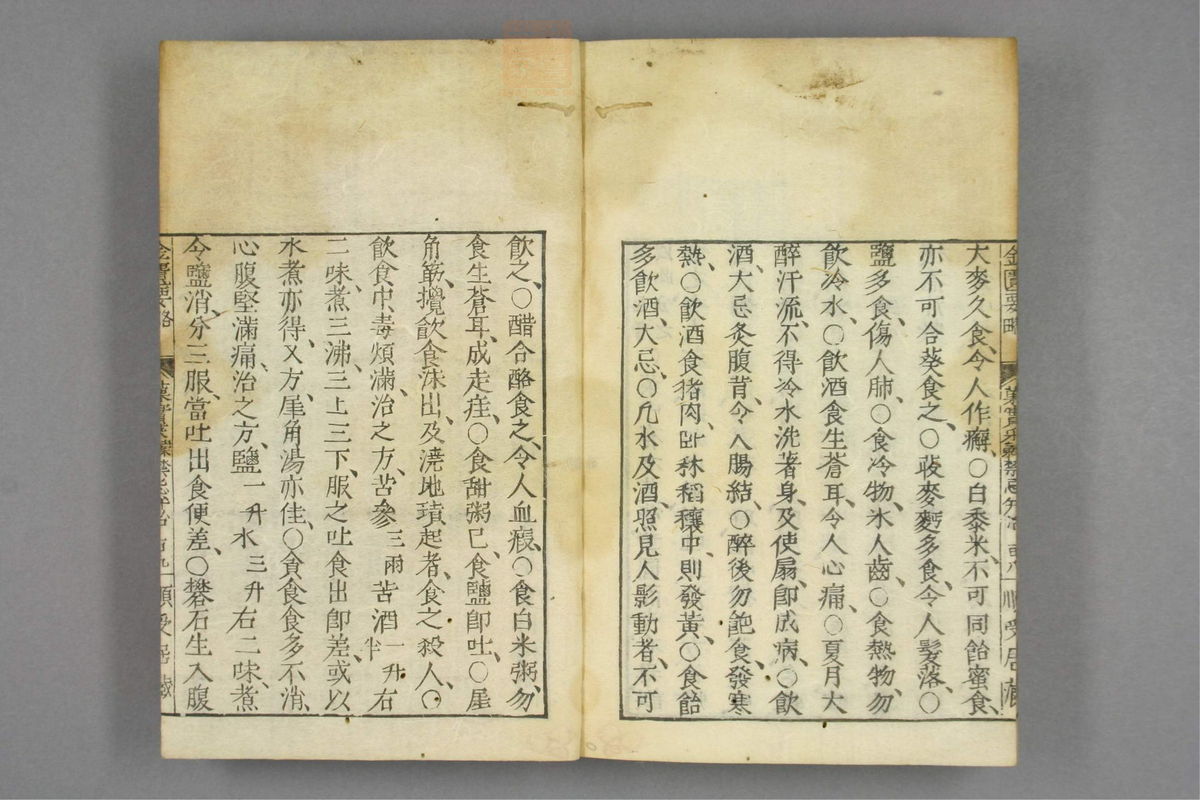 大麥久食令人作癬、○白黍米、不可同飴蜜食、
亦不可合葵食之、○荍麥麪多食、令人髮落、○
鹽多食、傷人肺、○食冷物、氷人齒、○食熱物、勿
飲冷水、○飲酒食生蒼耳、令人心痛、○夏月大
醉汗流、不得冷水洗著身、及使扇、卽成病、○飲
酒、大忌灸腹背、令人腸結、○醉後勿飽食、發寒
熱、○飲酒食猪肉、臥秫稻穰中、則發黃、○食飴
多飲酒、大忌、○凡水及酒、照見人影動者、不可
飲之、○醋合酪食之、令人血瘕、○食白米粥、勿
食生蒼耳、成走疰、○食甜粥已、食鹽卽吐、○犀
角筯、攪飲食沫出、及澆地墳起者、食之殺人、○
飲食中毒煩滿、治之方、苦參三兩苦酒一升半右
二味、煮三沸、三上三下、服之吐食出卽差、或以
水煮亦得、又方、犀角湯亦佳、○貪食食多不消、
心腹堅滿痛、治之方、鹽一升水三升右二味、煮
令鹽消、分三服、當吐出食便差、○礬石生入腹